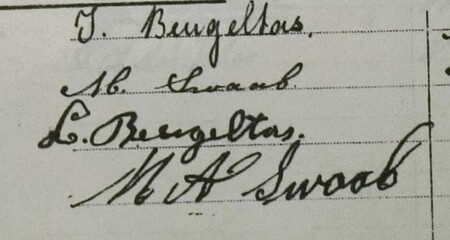 J. Beugeltas.
M. Swaab
L. Beugeltas.
M A Swaab